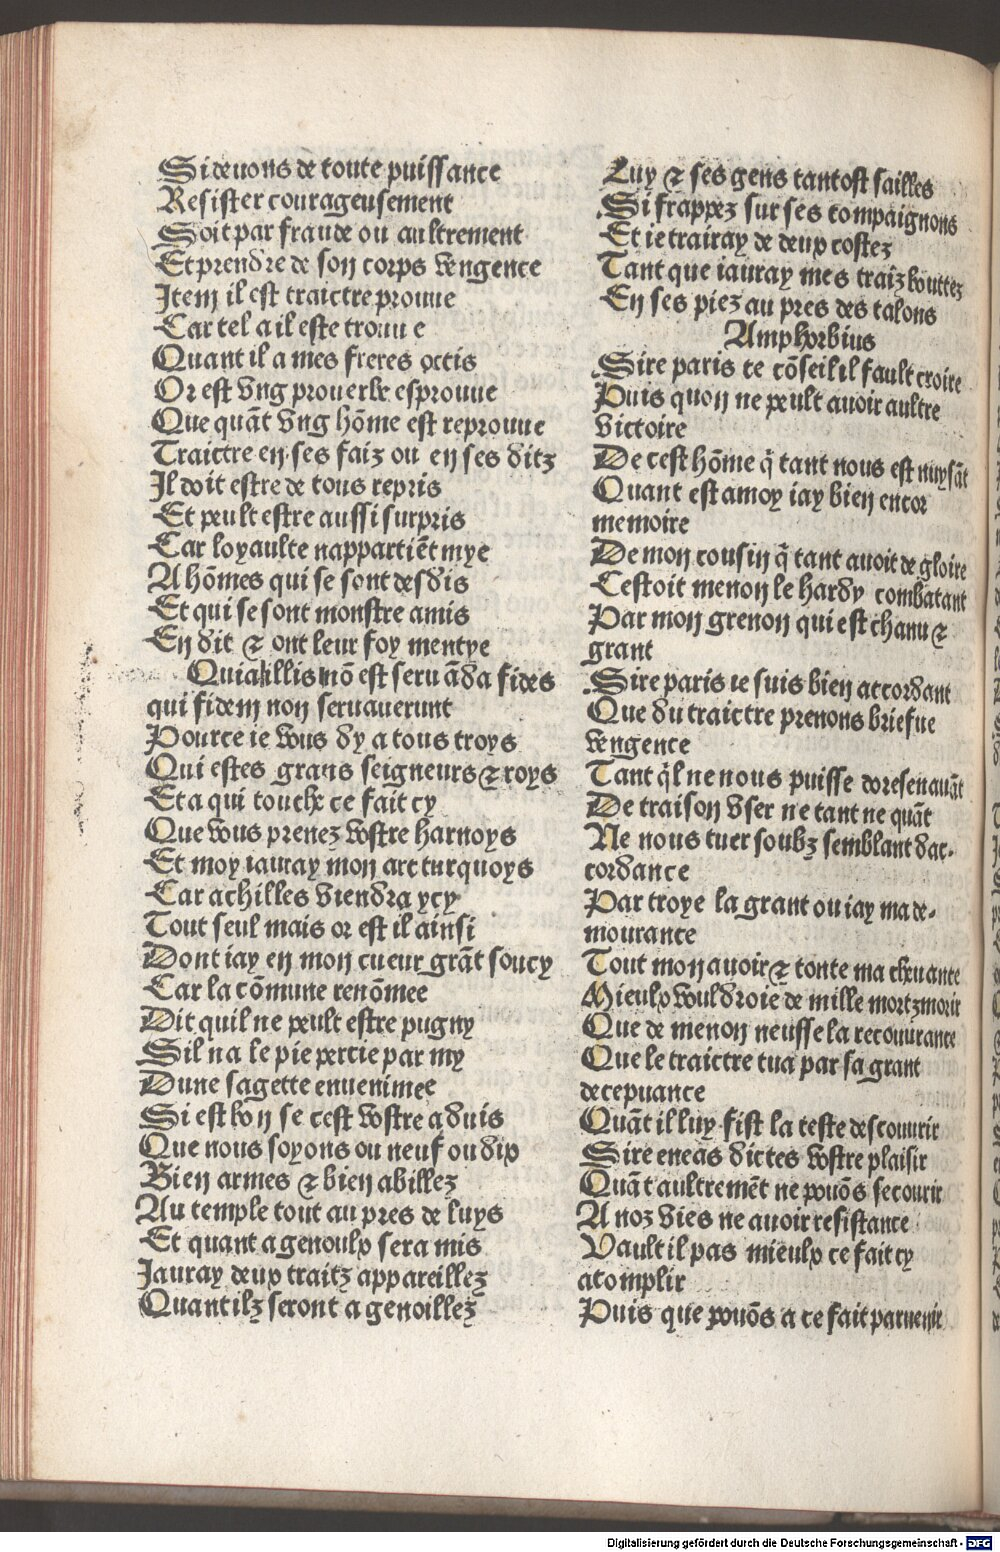 Si deuons de toute puissance
Resister courageusement
Soit par fraude ou aultrement
Et prendre de son corps vengence
Item il est traictre prouue
Car tel a il este trouue
Quant il a mes freres occis
Or est vng prouerbe esprouue
Que quãt vng hõme est reprouue
Traictre en ses faiz ou en ses ditz
Il doit estre de tous repris
Et peult estre aussi surpris
Car loyaulte nappartiẽt mye
A hõmes qui se sont desdis
Et qui se sont monstre amis
En dit ⁊ ont leur foy mentye
Quia illis nõ est seruãda fides
qui fidem non seruauerunt
Pource ie vous dy a tous troys
Qui estes grans seigneurs ⁊ roys
Et a qui touche ce fait cy
Que vous prenez vostre harnoys
Et moy iauray mon arc turquoys
Car achilles viendra ycy
Tout seul mais or est il ainsi
Dont iay en mon cueur grãt soucy
Car la cõmune renõmee
Dit quil ne peult estre pugny
Sil na le pie percie par my
Dune sagette enuenimee
Si est bon se cest vostre aduis
Que nous soyons ou neuf ou dix
Bien armes ⁊ bien abillez
Au temple tout au pres de luys
Et quant a genoulx sera mis
Iauray deux traitz appareillez
Quant ilz seront a genoillez
Luy ⁊ ses gens tantost sailles
Si frappez sur ses compaignons
Et ie trairay de deux costez
Tant que iauray mes traiz bouttez
En ses piez au pres des talons
Amphorbius
Sire paris ce cõseil il fault croire
Puis quon ne peult auoir aultre
victoire
De cest hõme q̃ tant nous est nuysãt
Quant est a moy iay bien encor
memoire
De mon cousin q̃ tant auoit de gloire
Cestoit menon le hardy combatant
Par mon grenon qui est chanu ⁊
grant
Sire paris ie suis bien accordant
Que du traictre prenons briefue
vengence
Tant q̃l ne nous puisse doresenauãt
De traison vser ne tant ne quãt
Ne nous tuer soubz semblant dac-
cordance
Par troye la grant ou iay ma de-
mourance
Tout mon auoir ⁊ toute ma cheuance
Mieulx vouldroie de mille mortz morir
Que de menon neusse la recouurance
Que le traictre tua par sa grant
decepuance
Quãt il luy fist la teste descouurir
Sire eneas dictes vostre plaisir
Quãt aultremẽt ne pouõs secourir
A noz vies ne auoir resistance
Vault il pas mieulx ce fait cy
acomplir
Puis que pouõs a ce fait paruenir
Digitalisierung gefördert durch die Deutsche Forschungsgemeinschaft - DFG